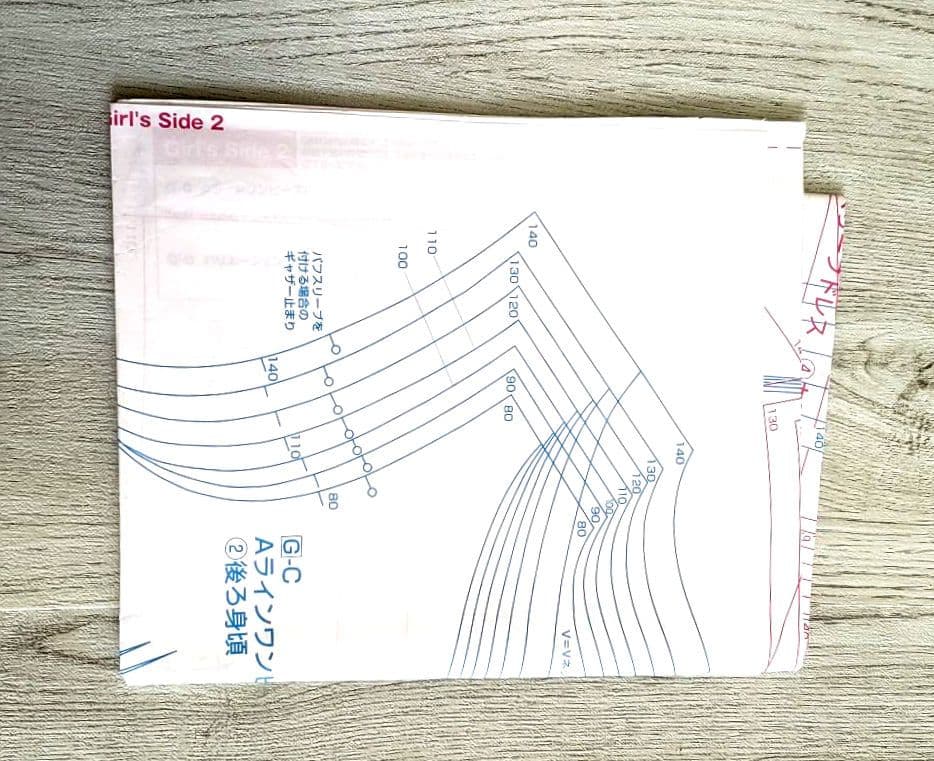 irl's Side 2
140
130
120
110
100
90
80
パフスリーブを
付ける場合の
ギャザー止まり
140
110
80
140
130
120
110
100
90
80
G-C
Aラインワンピ
②後ろ身頃
V=Vネ
ドレス
④
130
140